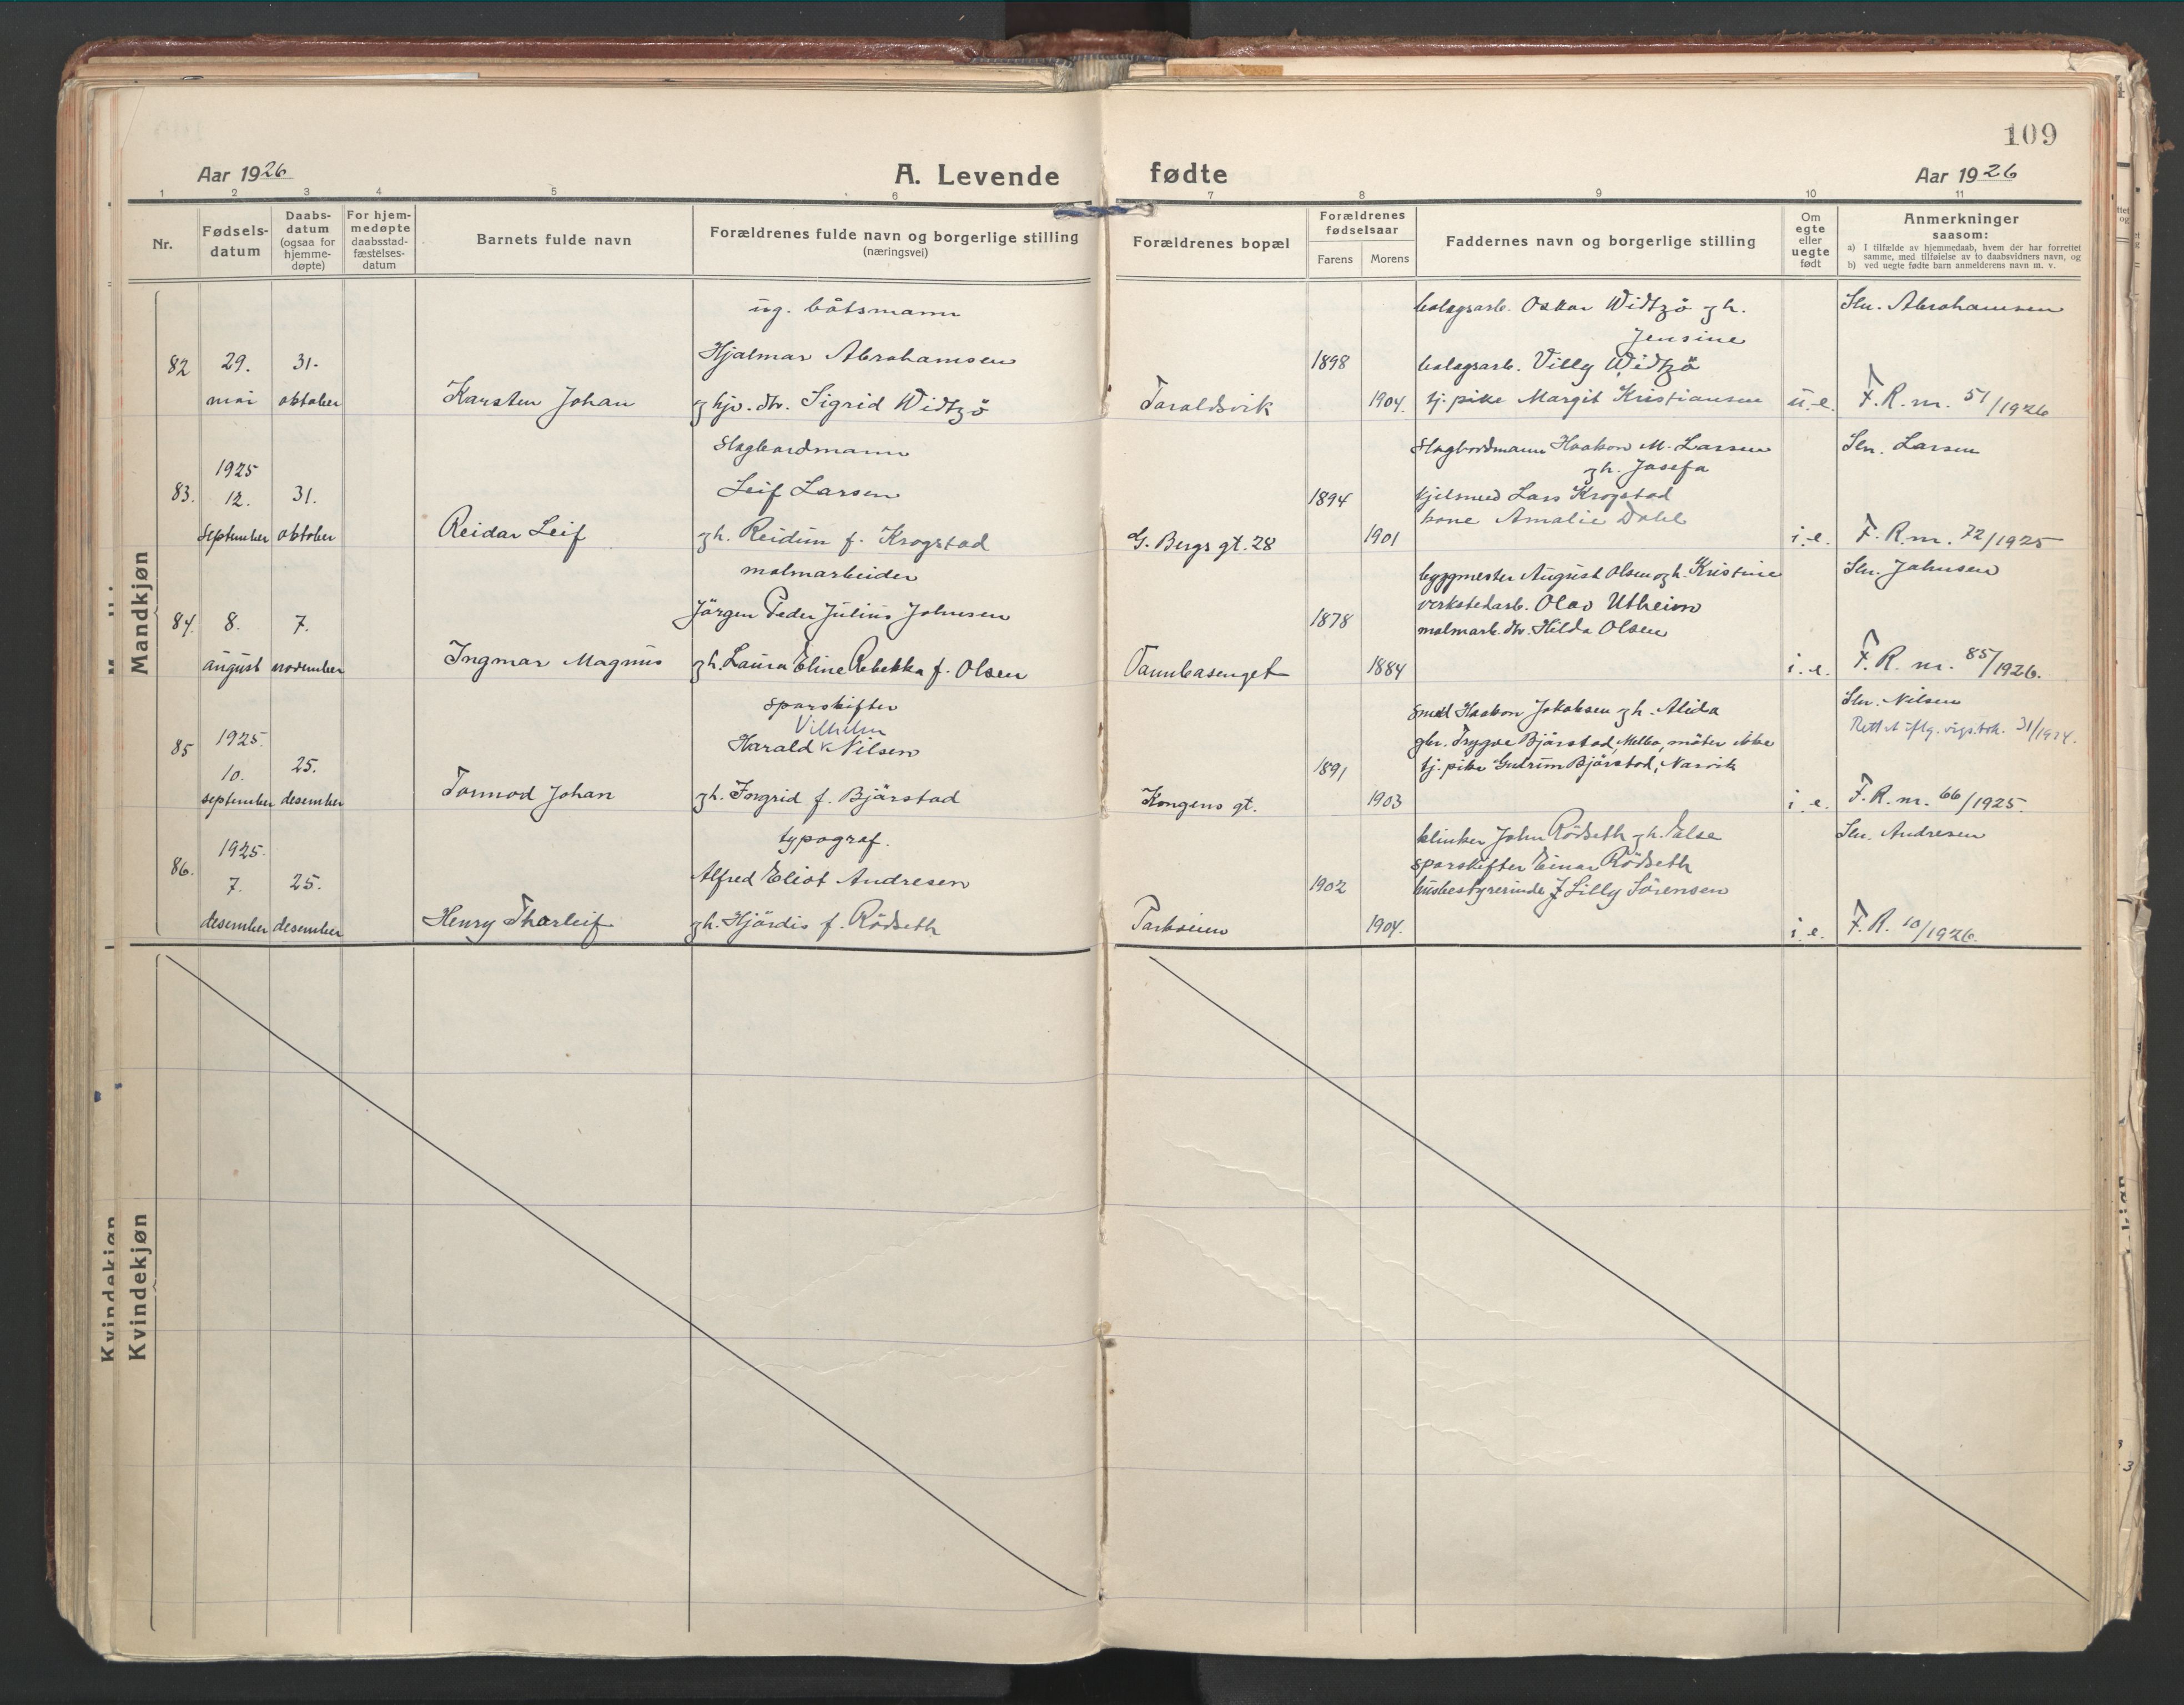 109
Aar 1926
A. Levende fødte
Aar 1926
1 2 3 4 5 6 7 8 9 10 11
Nr.
Fødsels-
datum
Daabs-
datum
(ogsaa for
hjemme-
døpte)
For hjem-
medøpte
daabsstad-
fæstelses-
datum
Barnets fulde navn
Forældrenes fulde navn og borgerlige stilling
(næringsvei)
Forældrenes bopæl
Forældrenes
fødselsaar
Farens Morens
Faddernes navn og borgerlige stilling
Om
egte
eller
uegte
født
Anmerkninger
saasom:
a) I tilfælde av hjemmedaab, hvem der har forrettet
samme, med tilføielse av to daabsvidners navn, og
b) ved uegte fødte barn anmelderens navn m. v.
Mandkjøn
82
29.
mai
31.
oktober
Karsten Johan
ug. båtsmann
Hjalmar Abrahamsen
og hjv. dtr. Sigrid Widtzö
Taraldsvik
1898
1904.
bolagsarb. Oskar Widtzö og h.
Jensine
bolagsarb. Villy Widtzö
tj. pike Margit Kristiansen
u. e.
Sln. Abrahamsen
F. R. nr. 51/1926
83.
1925
12.
september
31.
oktober
Reidar Leif
Slagbordmann
Leif Larsen
og h. Reidun f. Krogstad
G. Bergs gt. 28
1894
1901
Slagbordmann Haakon M. Larsen
og h. Josefa
kjelsmed Lars Krogstad
kone Amalie Dahl
i. e.
Sln. Larsen
F. R. nr. 72/1925
84.
8.
august
7.
november
Ingmar Magnus
malmarbeider
Jörgen Peder Julius Johnsen
og h. Laura Eline Rebekka f. Olsen
1878
1884
byggmester August Olsen og h. Kristine
verkstedarb. Olav Utheim
malmarb. dtr. Hilda Olsen
i. e.
Sln. Johnsen
F. R. nr. 85/1926.
85
1925.
10.
september
25.
desember
Tormod Johan
sporskifter
Vilhelm
Harald Nilsen
og h. Ingrid f. Bjärstad
Kongens gt.
1891
1903
smed Haakon Jakobsen og h. Alida
gbr. Trygve Bjärstad, Melbo, möter ikke
tj. pike Gudrun Bjärstad, Narvik
i. e.
Sln. Nilsen
Rettet iflg. vigs.bok. 31/1924.
F. R. nr. 66/1925.
86.
1925.
7.
desember
25.
desember
Henry Thorleif
typograf.
Alfred Eliot Andresen
og h. Hjördis f. Rödseth
Parkveien
1902
1904.
klinker John Rödseth og h. Else
sporskifter Einar Rödseth
husbestyrerinde Lilly Sörensen
i. e.
Sln. Andresen
F. R. 10/1926.
Kvindekjøn
Kvindekjøn